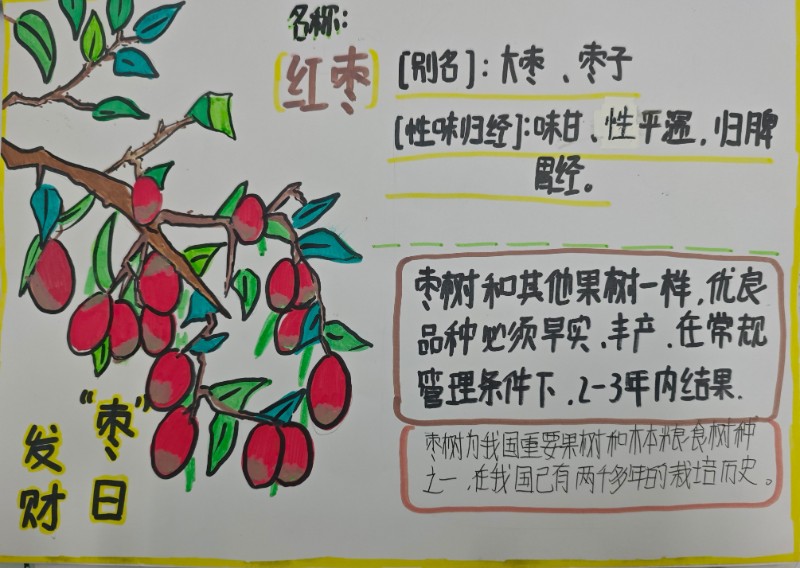 名称:
[红枣]
[别名]: 大枣、枣子
[性味归经]:味甘、性平温，归脾
胃经。
枣树和其他果树一样，优良
品种必须早实、丰产、在常规
管理条件下，2-3年内结果.
枣树为我国重要果树和木本粮食树种
之一，在我国已有两千多年的栽培历史。
"枣"日
发财